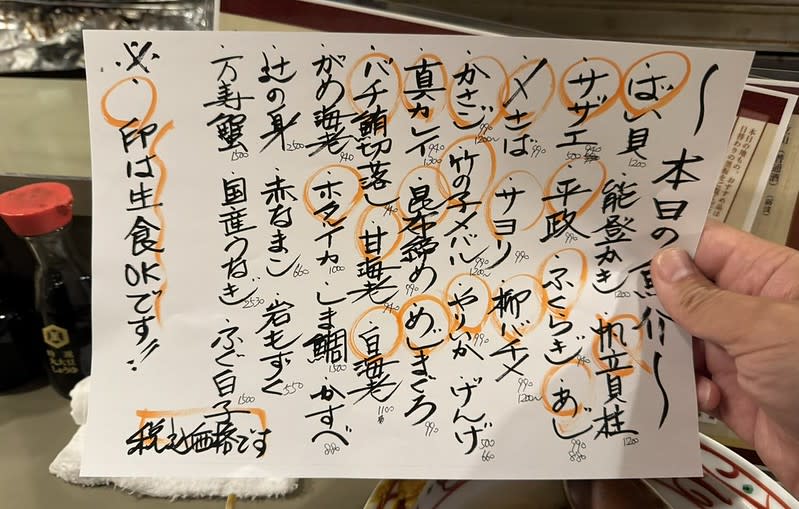 〜本日の魚介〜
ばい貝 1200
能登かき 1200
帆立貝柱 1200
サザエ 500
平政 990
ふくらぎ
あじ 990 880
〆さば 990
サヨリ 990
柳バチメ 990 1200〜
かさご 990 1200〜
竹の子メバル 990 1200〜
やりいか 990
げんげ 500 660
真カレイ 940 1300
昆布締め 990
めじまぐろ 990
バチ鮪切落し 940
甘海老 940
白海老 1100
がめ海老 940
ホタルイカ 1000
しま鯛 1500
かすべ 880
辻の身 2500
赤なまこ 660
岩もずく 550
万寿蟹 1500
国産うなぎ 2530
ふぐ白子 1500
※
○印は生食OKです!!
税込価格です
本日の地もの、おすすめ品は